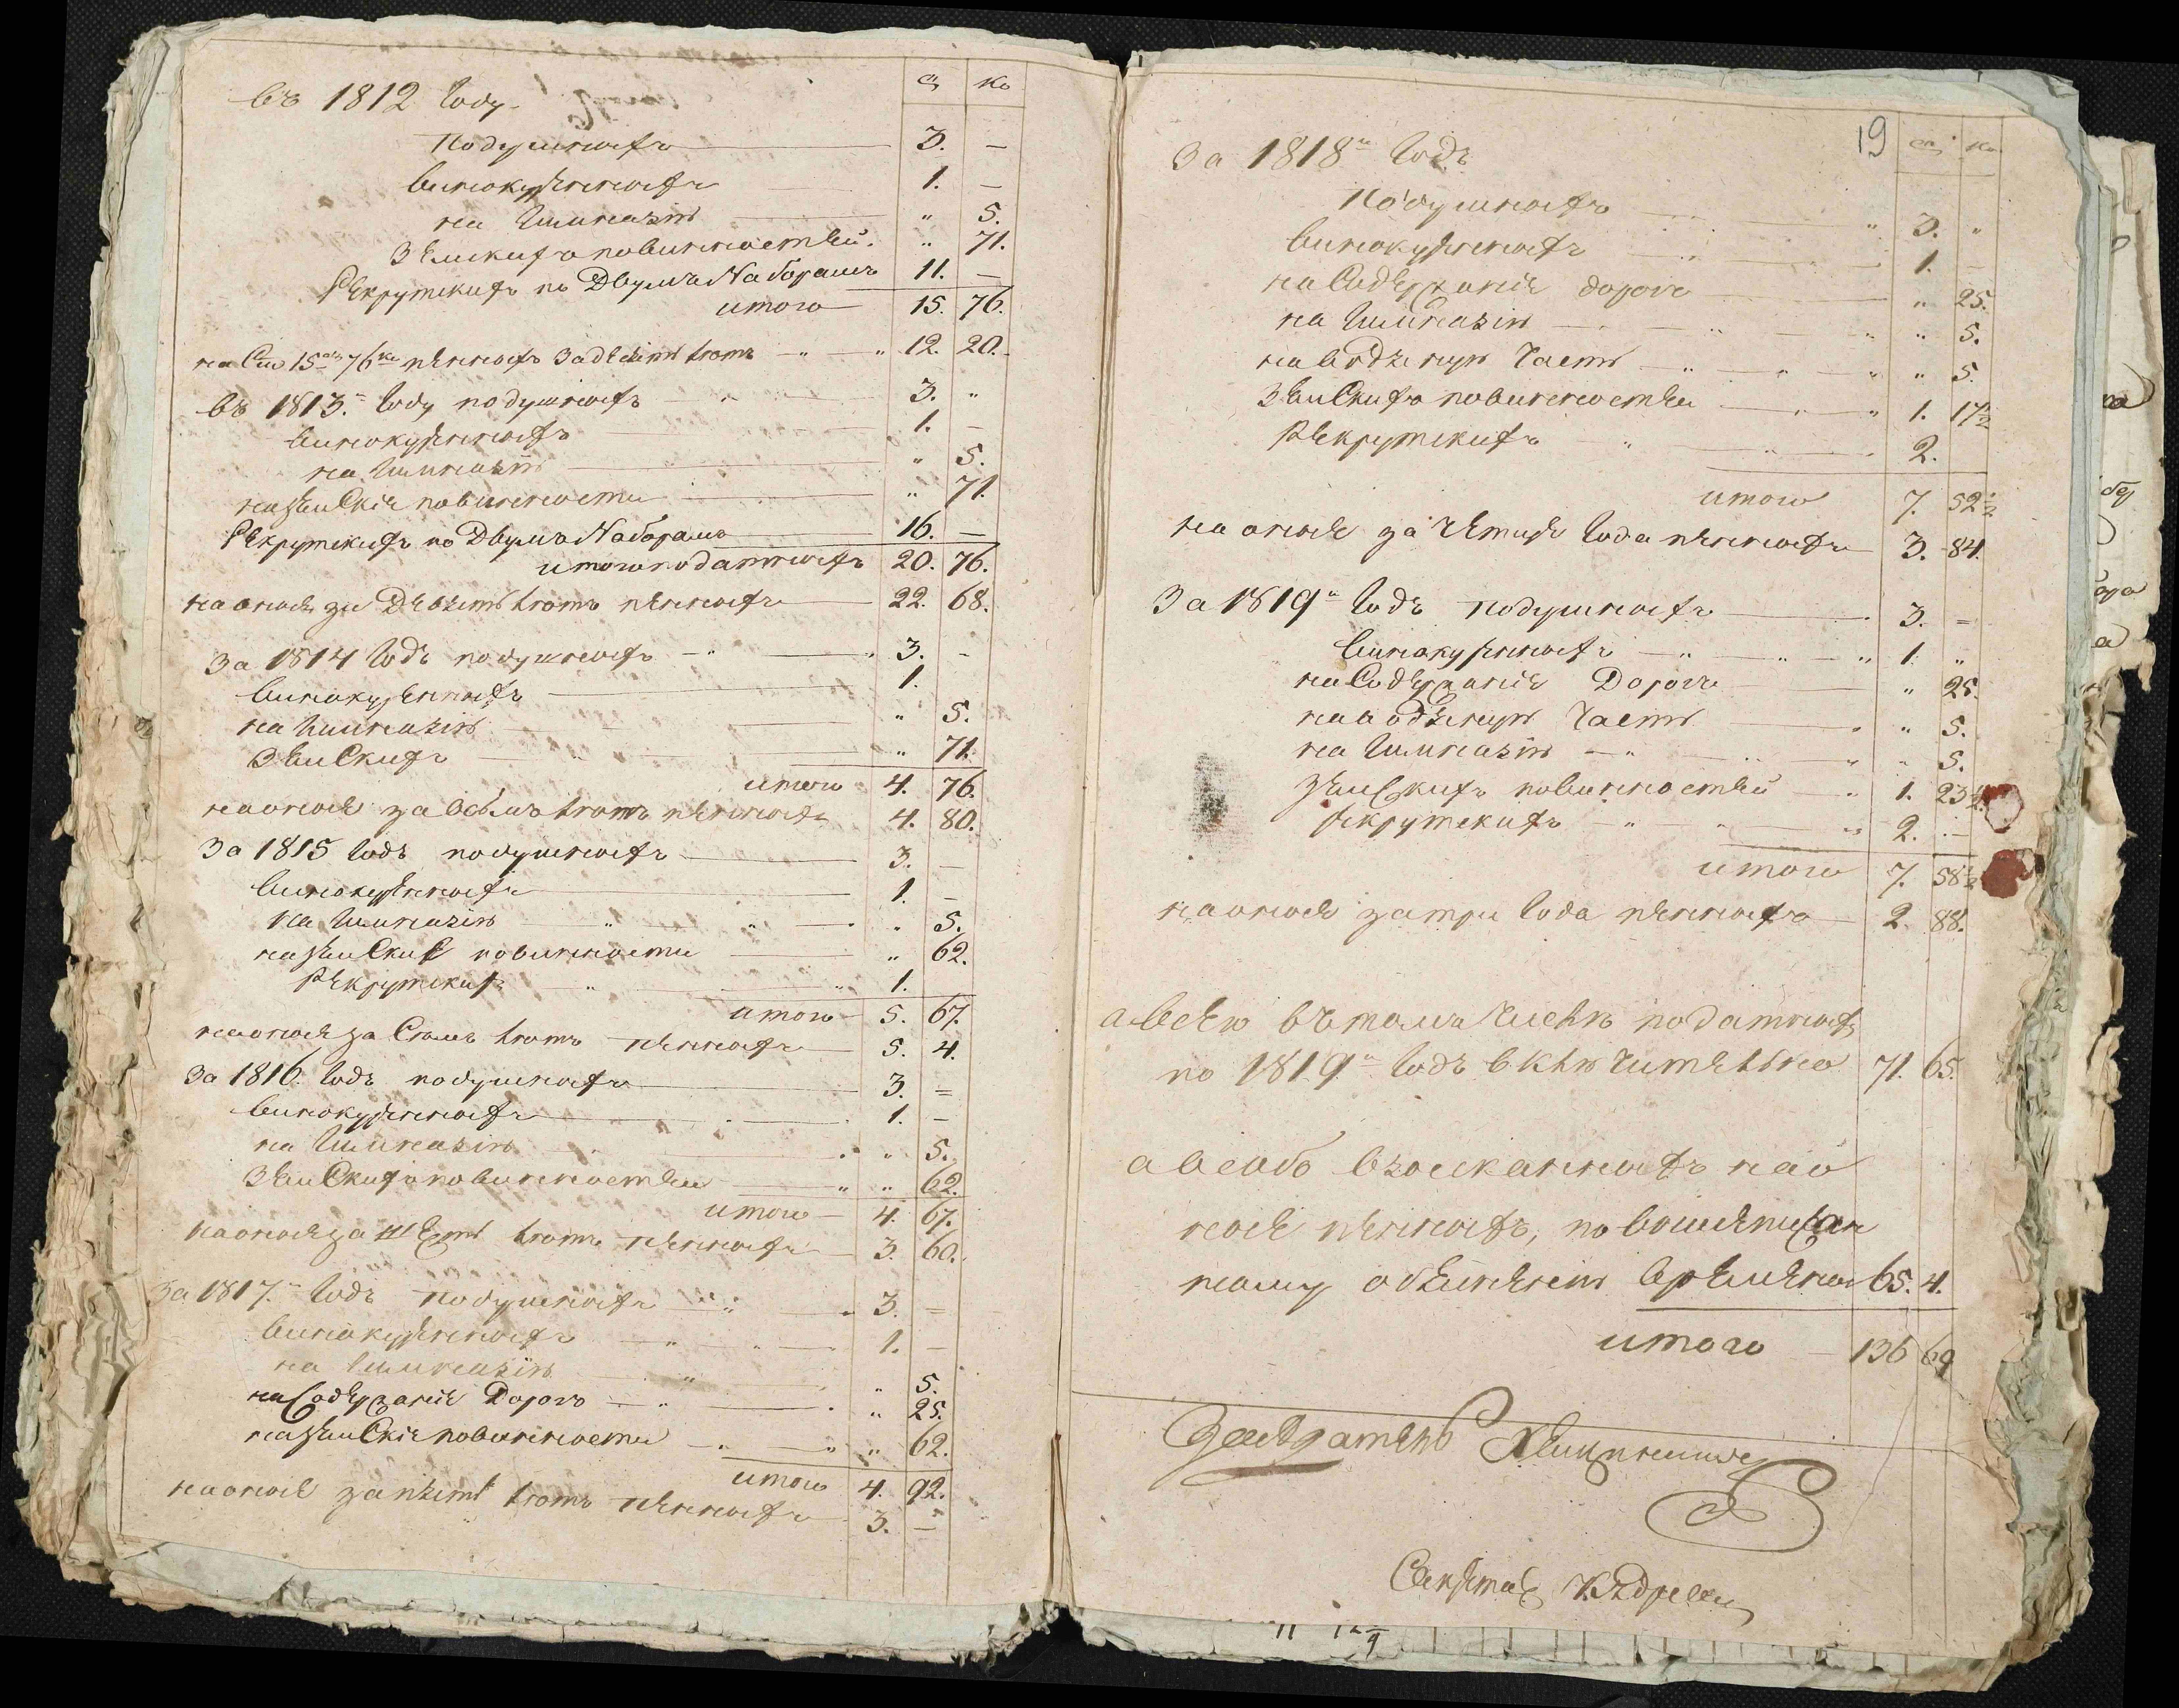 въ 1812 Году
р ко
подушныхъ 3. —
винокуренныхъ 1. —
на Гимназiю " 5.
Земскихъ повинностей. " 71.
Рекрутскихъ по Двумъ Наборамъ 11. —
итого 15. 76.
на Сию 15 76 ко пенныхъ за десять летъ " " 12. 20.
въ 1813. Году подушныхъ 3. "
винокуренныхъ 1. —
на Гимназiю " 5.
на земскiе повинности " 71.
Рекрутскихъ по Двумъ Наборамъ 16. —
итого податныхъ 20. 76.
на оные за Девять летъ пенныхъ 22. 68.
За 1814 Годъ подушныхъ 3. -
винокуренныхъ 1.
на Гимназiю " 5.
Земскихъ " 71.
итого 4. 76.
на оные за восемь летъ пенныхъ 4. 80.
За 1815 Годъ подушныхъ 3. —
винокуренныхъ 1. —
на Гимназiю " 5.
на земские повинности " 62.
Рекрутскихъ 1.
итого 5. 67.
на оные за Семь летъ пенныхъ 5. 4.
За 1816. Годъ подушныхъ 3. =
винокуренныхъ 1. —
на Гимназiю " 5.
Земскихъ повинностей " 62.
итого 4. 67.
на оные за Шесть летъ пенныхъ 3. 60.
За 1817. Годъ подушныхъ 3. =
винокуренныхъ 1. —
на Гимназiю " 5.
на Содержанiе Дорогъ " 25.
на земскiе повинности " 62.
итого 4. 92.
на оные за пять летъ пенныхъ 3. —
19
р ко
За 1818 Годъ
подушныхъ 3. "
винокуренныхъ 1. —
на Содержанiе дорогъ " 25.
на Гимназiю " 5.
на водяную Часть " 5.
Земскихъ повинностей 1. 17½
Рекрутскихъ 2.
итого 7. 52½
на оные за Четыре Года пенныхъ 3. 84.
За 1819 Годъ подушныхъ 3. =
винокуренныхъ 1. "
на Содержанiе Дорогъ " 25.
на водяную Часть " 5.
на Гимназiю " 5.
земскихъ повинностей 1. 23½
рекрутскихъ 2. —
итого 7. 58½
на оные за три Года пенныхъ 2. 88.
а всего въ томъ числе податныхъ
по 1819 Годъ включительно 71. 65.
а особо взысканныхъ на о
ные пенныхъ, по вышеписан
ному обьяснению времени 65. 4.
итого 136 69
Заседатель
Секретарь